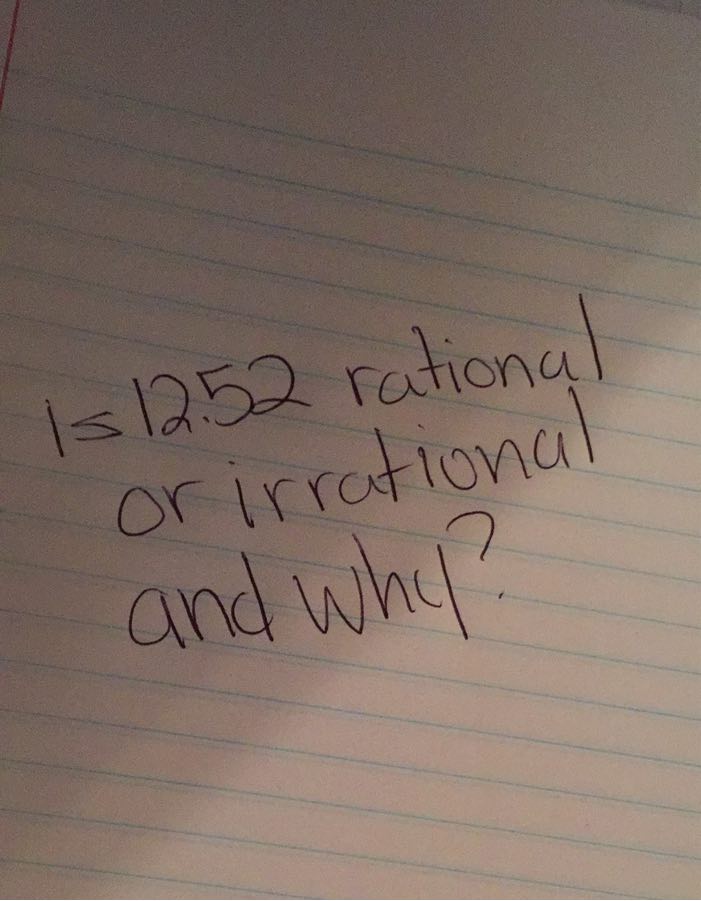 is 12.52 rational
or irrational
and why?